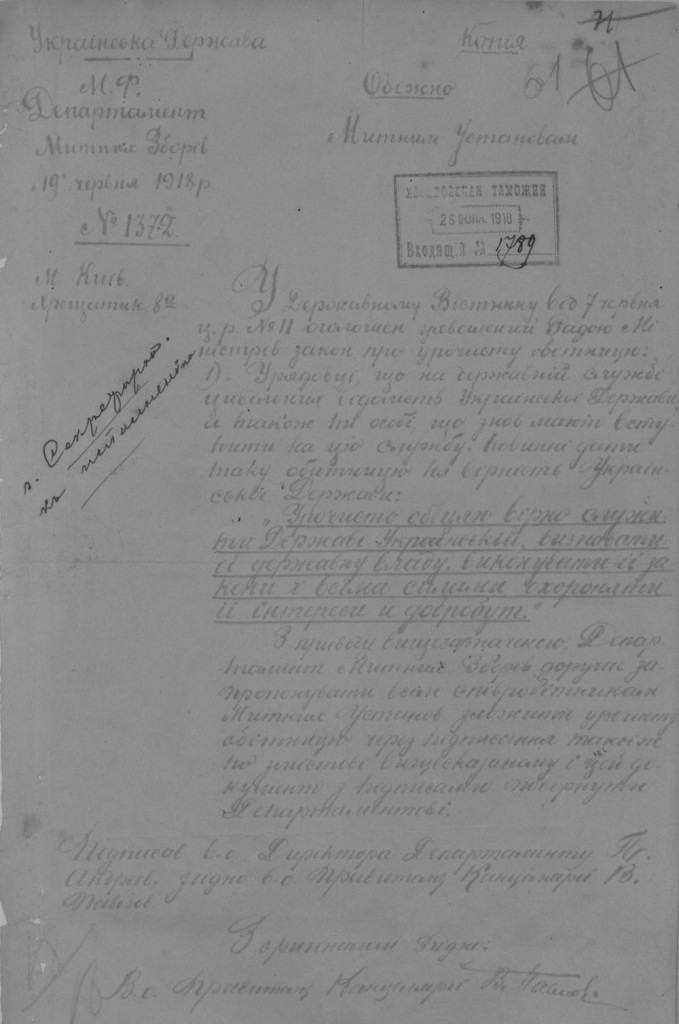 Українська Держава
М. Ф.
Департамент
Митних Зборів
"19" червня 1918 р.
№ 1372.
М. Київ
Хрещатик 8а
Копія
Обіжно
Митним Установам
71
61
ТАМОЖНЯ
26 1918
Входящій № 1789
г. Секретарю.
къ исполненію
У Державному Вістнику від 7 червня
ц.р. № 11 оголошен ухвалений Радою Мі-
ністрів закон про урочисту обітницю:
1). Урядовці, що на державній службі
цивільних відомств Української Держави,
а також ті особі, що знов мають всту-
пити на цю службу, повинні дати
таку обітницю на вірність Україн-
ській Держави:
"Урочисто обіцяю вірно служи-
ти Державі Українській, визнавати
її державну владу, виконувати її за-
кони і всіма силами охороняти
її інтереси и добробут."
З приводу вищезазначеного, Депар-
тамент Митних Зборів доручає за-
пропонувати всім співробітникам
Митних Установ зложити урочисту
обітницю через підписання такої ж
по змістові вищесказаному і цей до-
кумент з підписами повернути
Департаментові.
Подписав в.о. Директора Департаменту
згідно в.о. Правитель Канцелярії В.
Павлов
З оригіналом згідно:
В.о. Правитель Канцелярії В. Павлов.